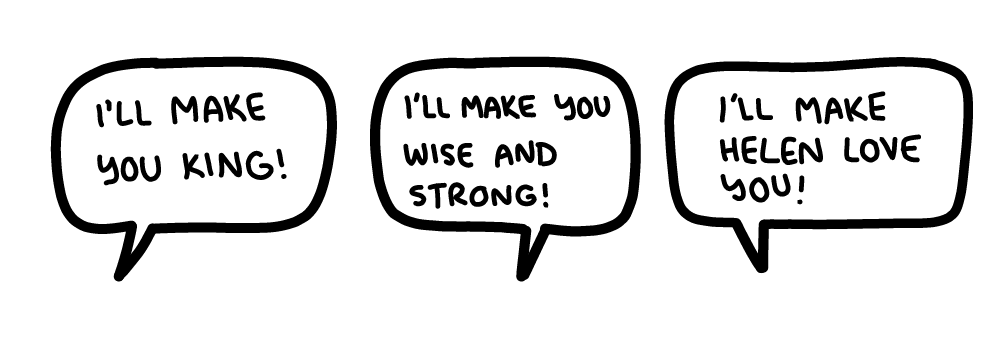 I'LL MAKE
YOU KING!
I'LL MAKE YOU
WISE AND
STRONG!
I'LL MAKE
HELEN LOVE
YOU!